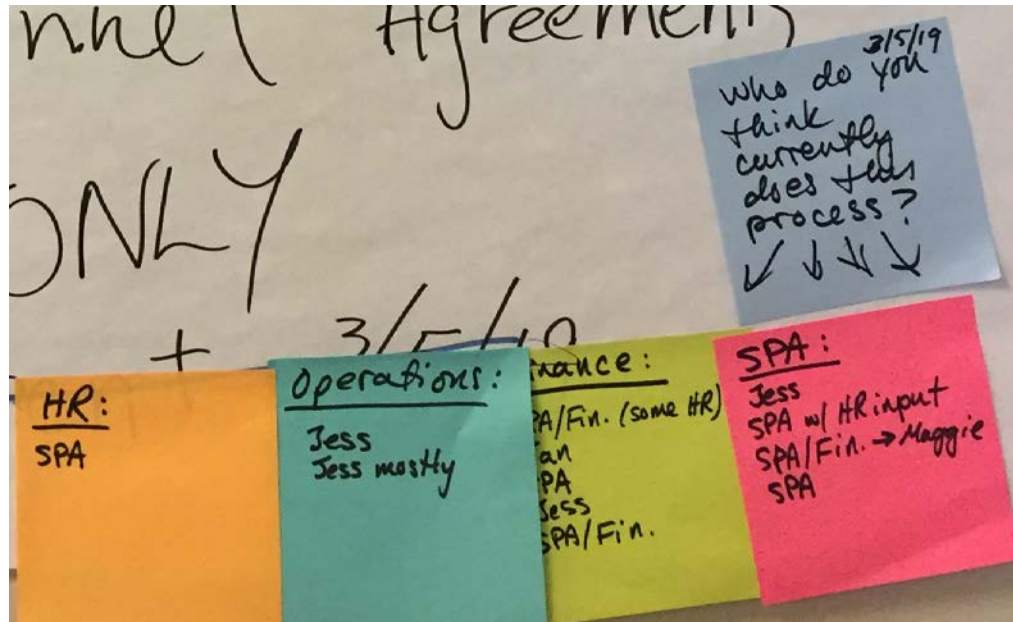 Agreements
ONLY
+ 3/5/19
3/5/19
Who do you
think
currently
does this
process?
HR:
SPA
Operations:
Jess
Jess mostly
nance:
PA/Fin. (some HR)
an
PA
Jess
SPA/Fin.
SPA:
Jess
SPA w/ HR input
SPA/Fin. → Maggie
SPA